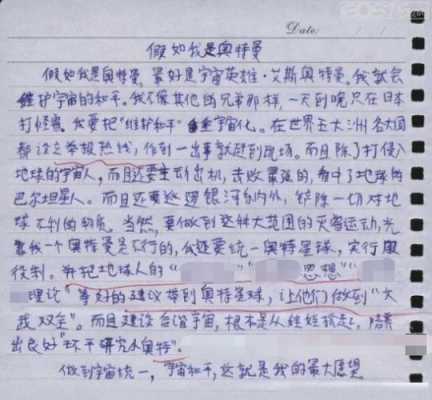 Date:
假如我是奥特曼
假如我是奥特曼,最好是宇宙英雄·艾斯奥特曼。我就会
维护宇宙的和平。我不像其他的兄弟那样,一天到晚只在日本
打怪兽。我要把"维护和平"宇宙化。在世界五大洲各大国
都设立举报热线,做到一出事就赶到现场。而且除了打侵入
地球的宇宙人,而且还要主动出机,击败最强的,看中了地球的
巴尔坦星人。而且还要巡逻银河系内外,铲除一切对地
球不利的物质。当然,要做到这种大范围的灭害运动,光
靠我一个奥特曼是不行的,我还要统一奥特星球,实行服
役制。并把地球人的" 思想"
理论"等好的建议带到奥特星球,让他们做到"文
武双全"。而且建设合谐宇宙,根本是从娃娃抓起,培养
出良好"环平研究小奥特"。
做到宇宙统一,宇宙和平,这就是我的最大愿望